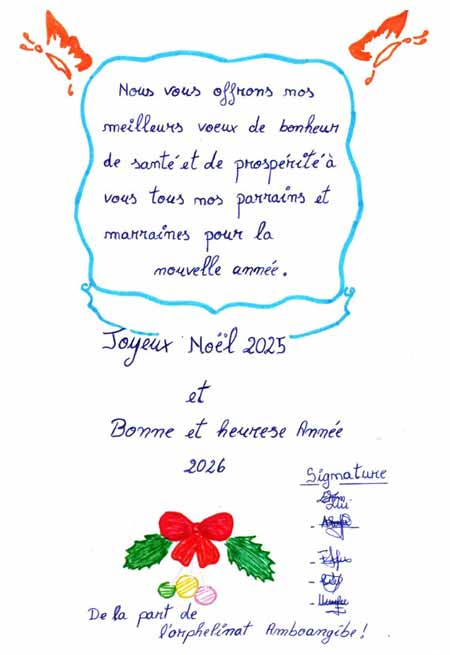 Nous vous offrons nos
meilleurs voeux de bonheur
de santé et de prospérité à
vous tous nos parrains et
marraines pour la
nouvelle année.
Joyeux Noël 2025
et
Bonne et heurese Année
2026
Signature
De la part de
l'orphelinat Amboangibe!